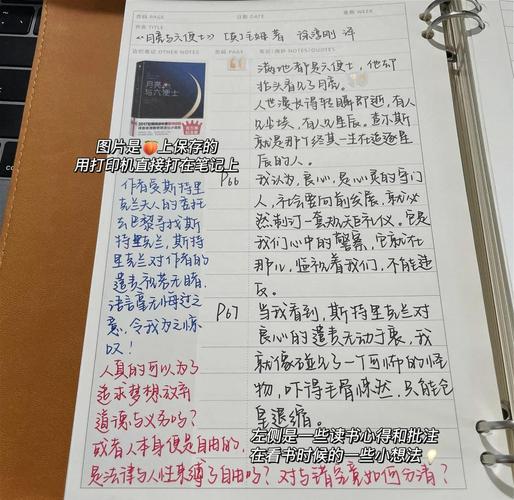 页码 PAGE
日期 DATE
星期 WEEK
书名 TITLE
《月亮与六便士》 [英]毛姆 著 徐淳刚 译
其他笔记 OTHER NOTES
页码 PAGE
笔记/摘抄 NOTES/QUOTES
月亮
与六便士
满地都是六便士，他却
抬头看见了月亮。
人世漫长得转瞬即逝，有人
见尘埃，有人见星辰。查尔斯
就是那个终其一生在追逐星
辰的人。
图片是🍑上保存的
用打印机直接打在笔记上
P66
我认为，良心，是心灵的守门
人，社会要向前发展，就必
然制订一套规矩礼仪。它是
我们心中的警察，它就在
那儿，监视着我们，不能违
反。
作者受斯特里
克兰夫人的委托
去巴黎寻找斯
特里克兰，斯特
里克兰对作者的
遣责视若无睹，
语言毫无悔过之
意，令我为之惊
叹！
P67
当我看到，斯特里克兰对
良心的遣责无动于衷，我
就像碰见了一个可怖的怪
物，吓得毛骨悚然，只能仓
皇退缩。
人真的可以为了
追求梦想放弃
道德与义务吗？
或者人本身便是自由的，
是法律与人性束缚了自由吗？对与错究竟如何分清？
左侧是一些读书心得和批注
在看书时候的一些小想法